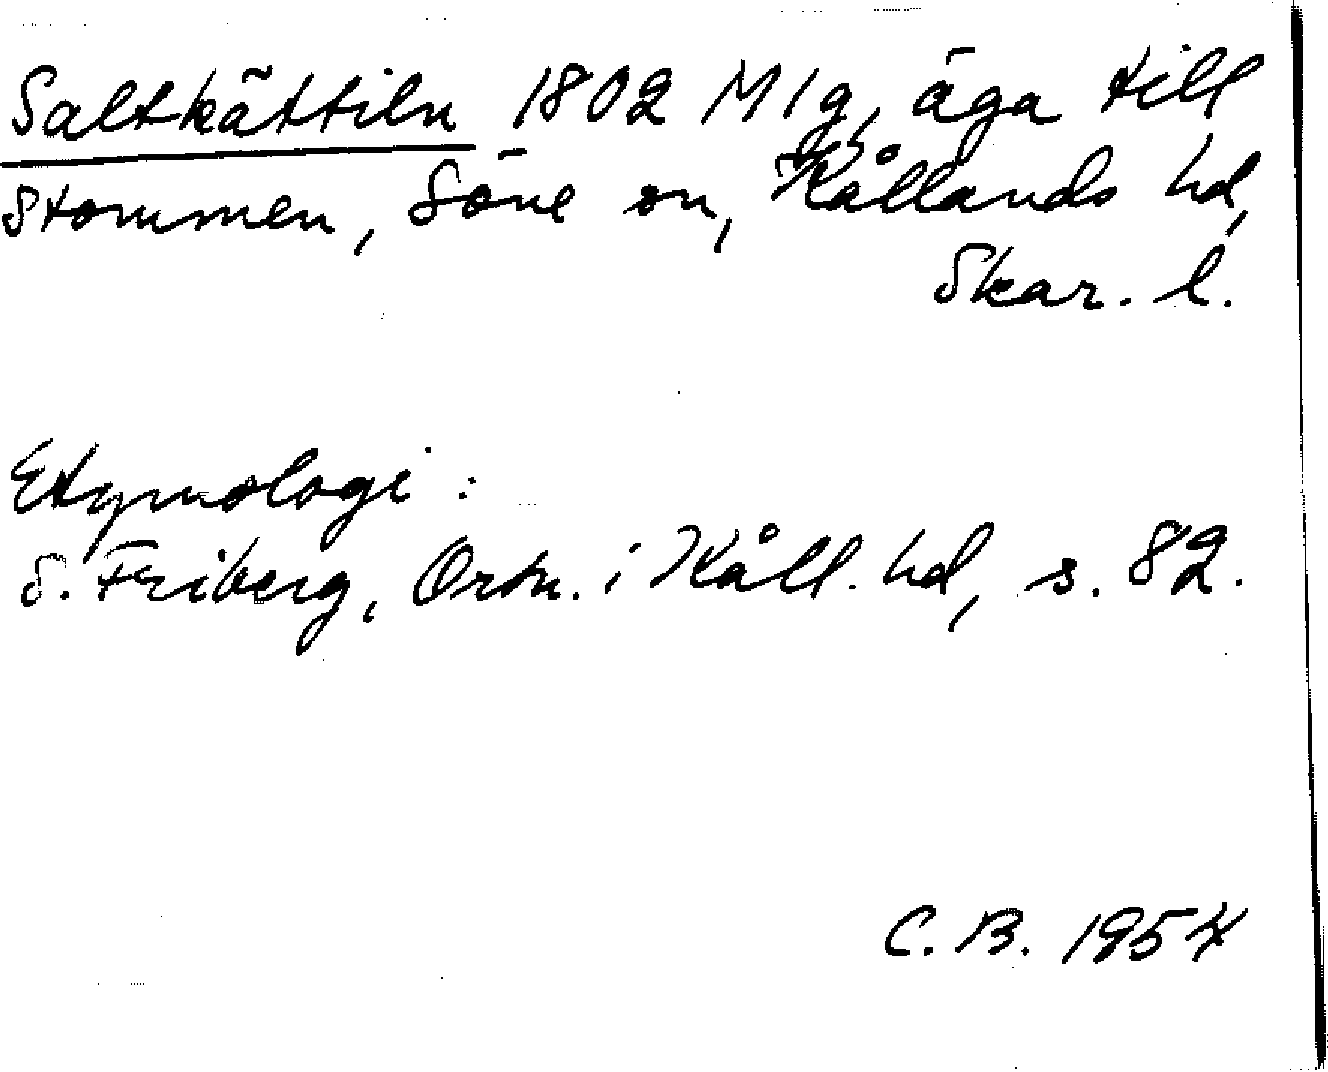 Saltkättiln 1802 Mlg, äga till
Stommen, Söne sn, Kållands hd,
Skar. l.
Etymologi:
S. Friberg, Ortn. i Kåll. hd, s. 82.
C. B. 1954